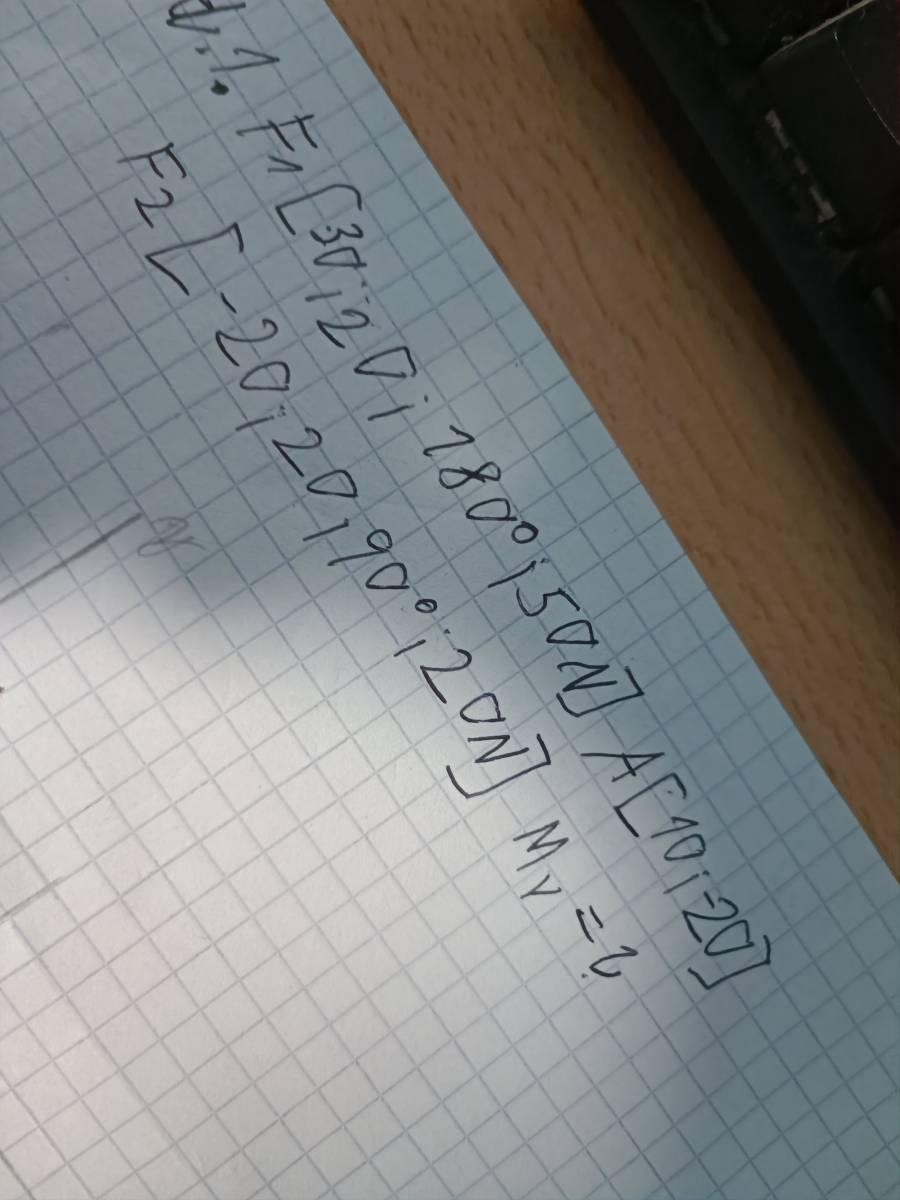 1. F1 [30; 20; 180°; 50N] A[10; -20]
F2 [-20; 20; 90°; 20N] Mv = ?